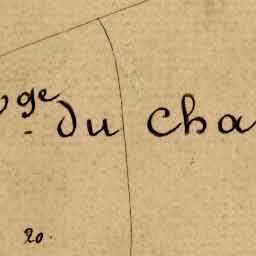 ge du Cha
20.